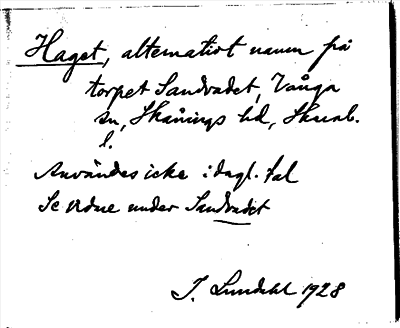 Haget, alternativt namn på
torpet Sandvadet, Vånga
sn, Skånings hd, Skarab.
l.
Användes icke i dagl. tal
Se vidare under Sandvadet
I. Lundahl 1928